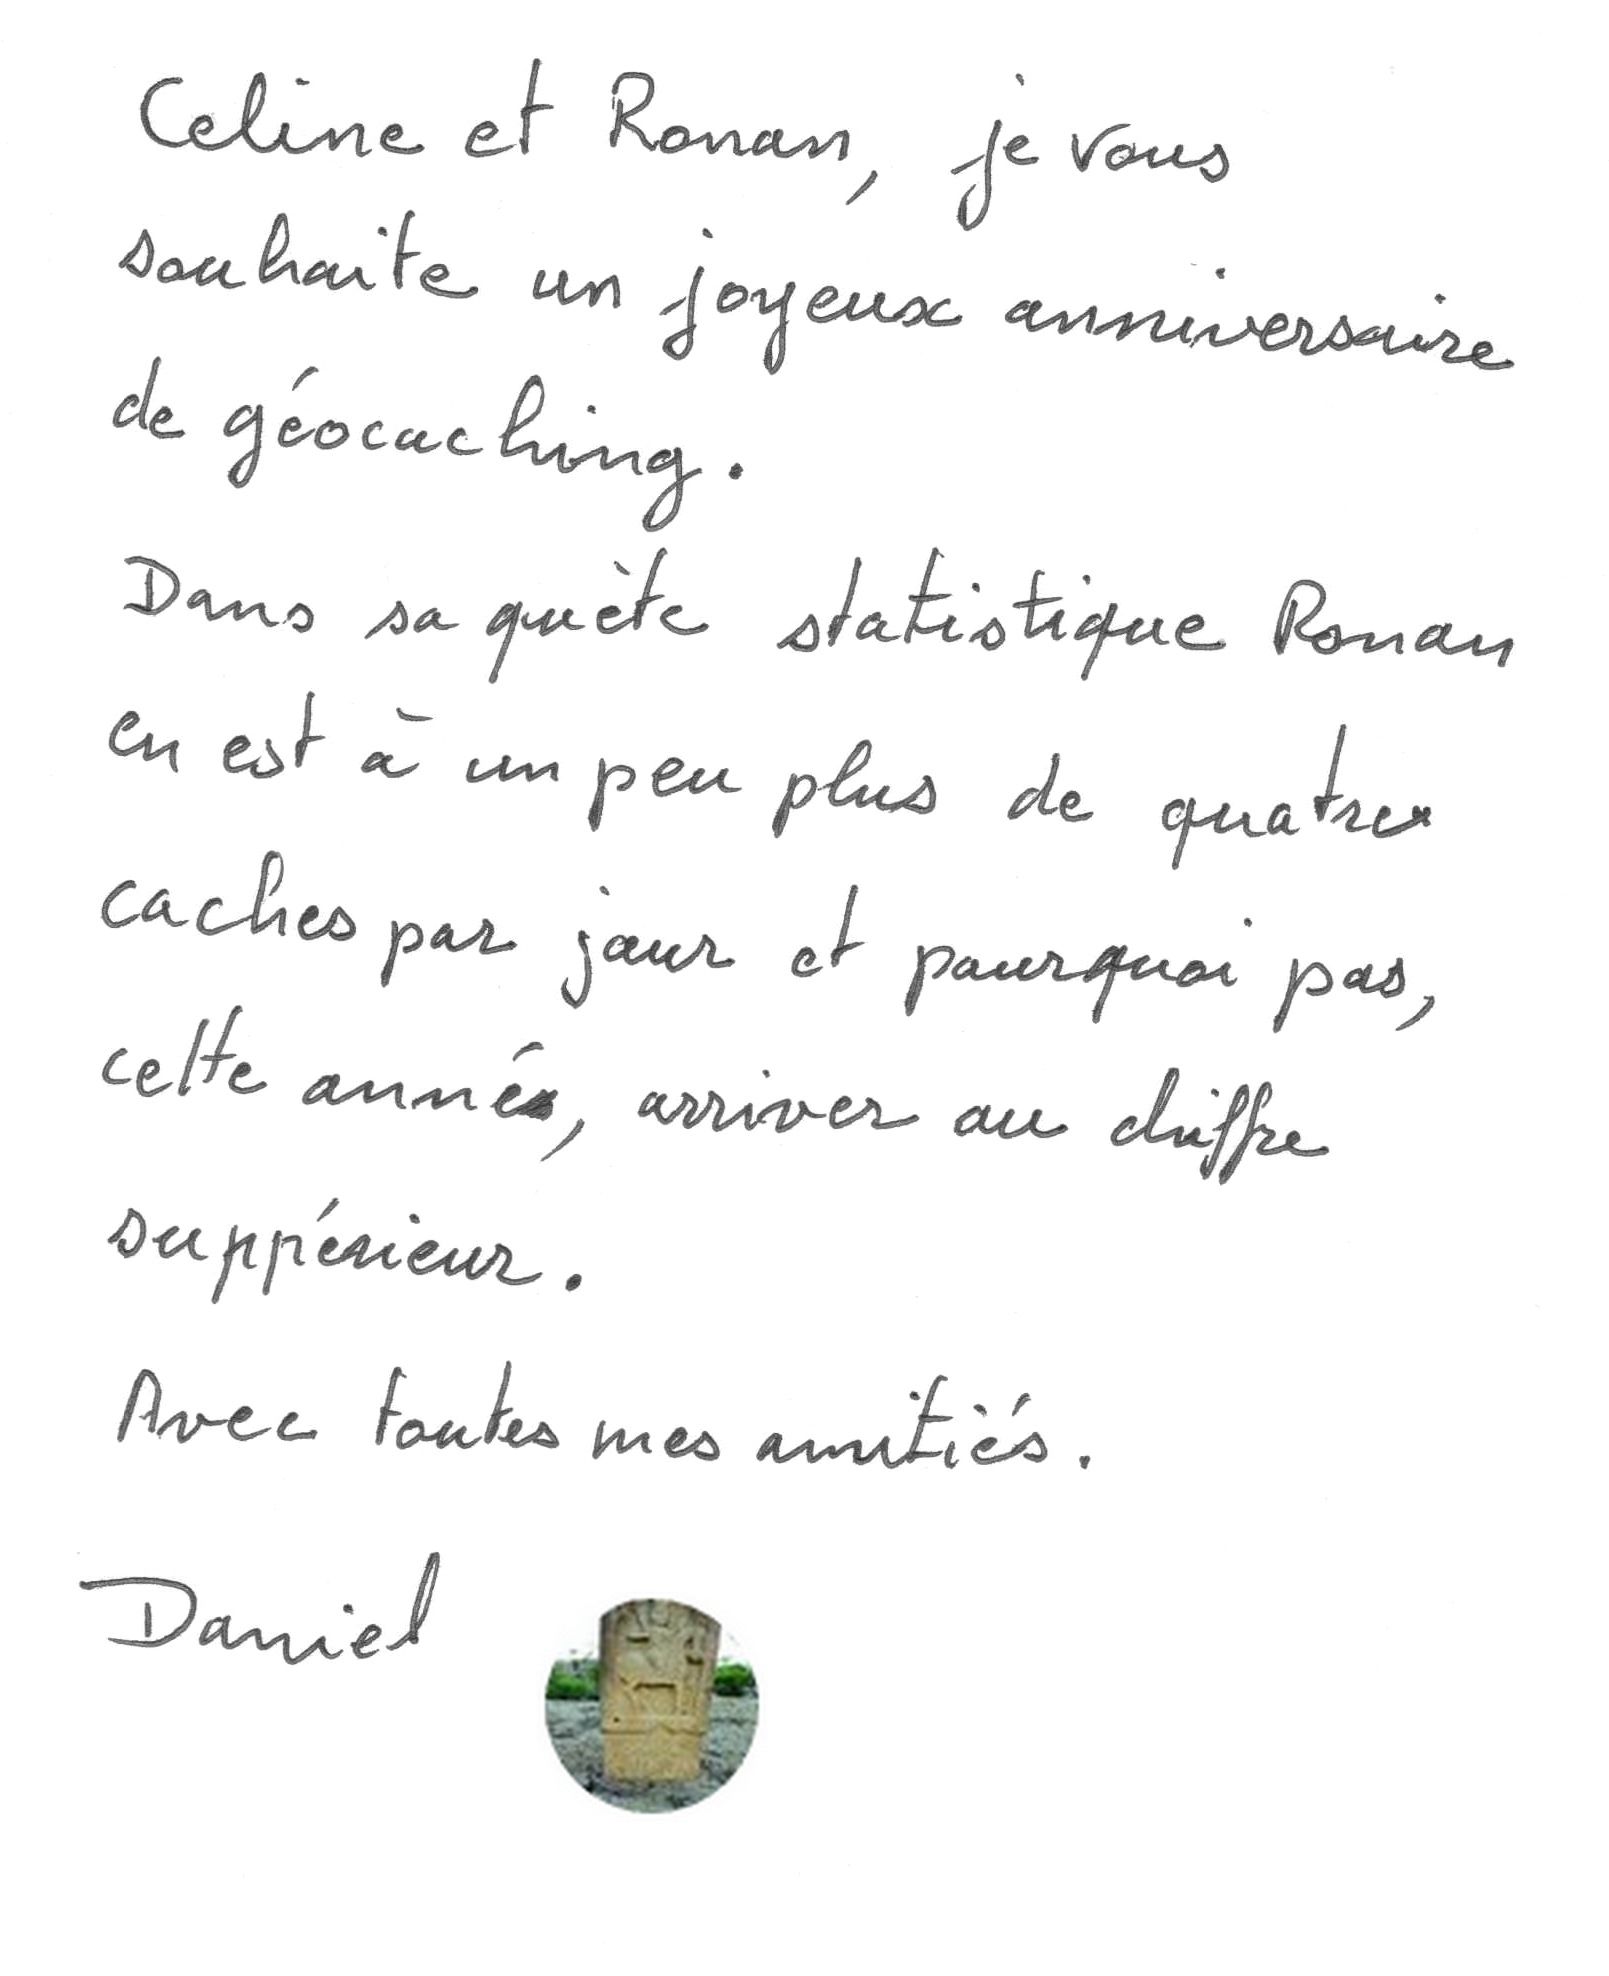 Celine et Ronan, je vous
souhaite un joyeux anniversaire
de géocaching.
Dans sa quète statistique Ronan
en est à un peu plus de quatre
caches par jour et pourquoi pas,
cette année, arriver au chiffre
suppérieur.
Avec toutes mes amitiés.
Daniel